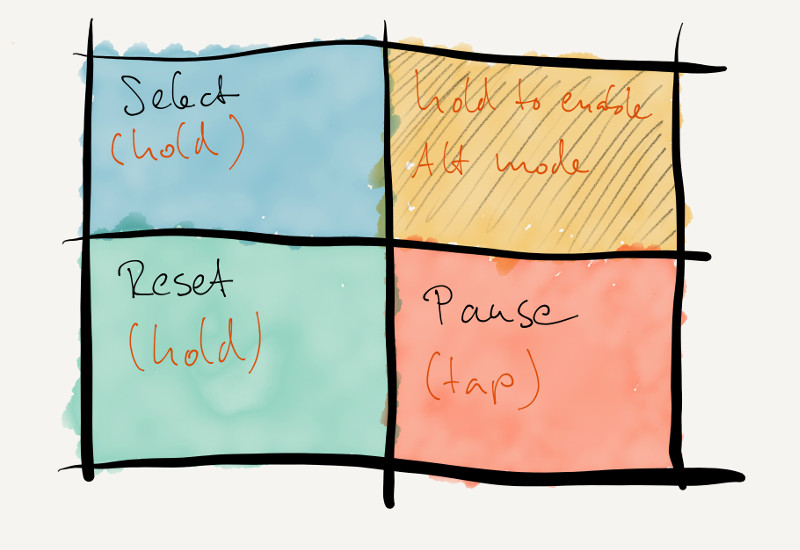 Select
(hold)
hold to enable
Alt mode
Reset
(hold)
Pause
(tap)